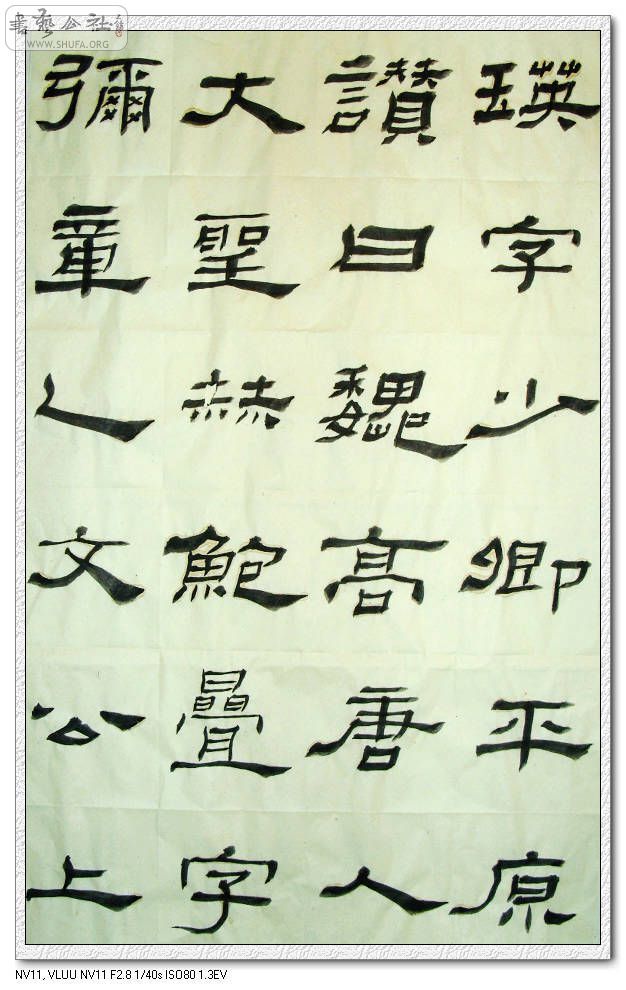 書藝公社
WWW.SHUFA.ORG
瑛字少卿平原
讚曰魏高唐人
大聖赫鮑疊字
彌章乙文公上
NV11, VLUU NV11 F2.8 1/40s ISO80 1.3EV